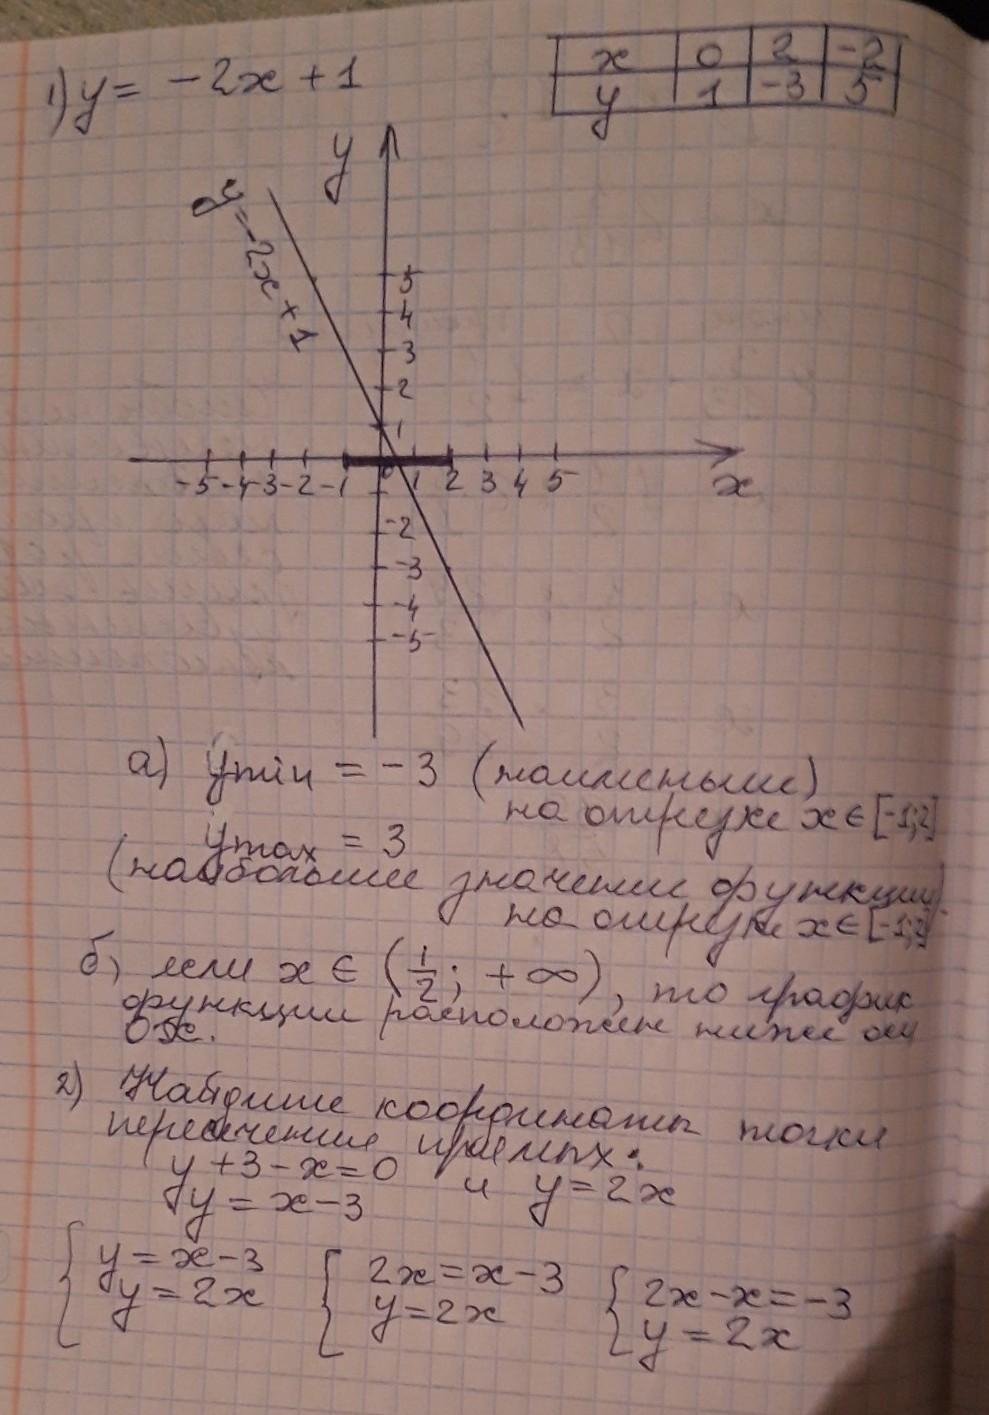 1) y = -2x + 1
x 0 2 -2
y 1 -3 5
y
y = -2x + 1
5
4
3
2
1
-5 -4 -3 -2 -1 0 1 2 3 4 5
x
-2
-3
-4
-5
а) ymin = -3 (наименьшее)
на отрезке x ∈ [-1; 2]
ymax = 3
(наибольшее значение функции)
на отрезке x ∈ [-1; 2]
б) если x ∈ (1/2; +∞), то график
функции расположен ниже оси
OX.
2) Найдите координаты точки
пересечения прямых:
y + 3 - x = 0 и y = 2x
y = x - 3
{ y = x - 3 { 2x = x - 3 { 2x - x = -3
y = 2x y = 2x y = 2x